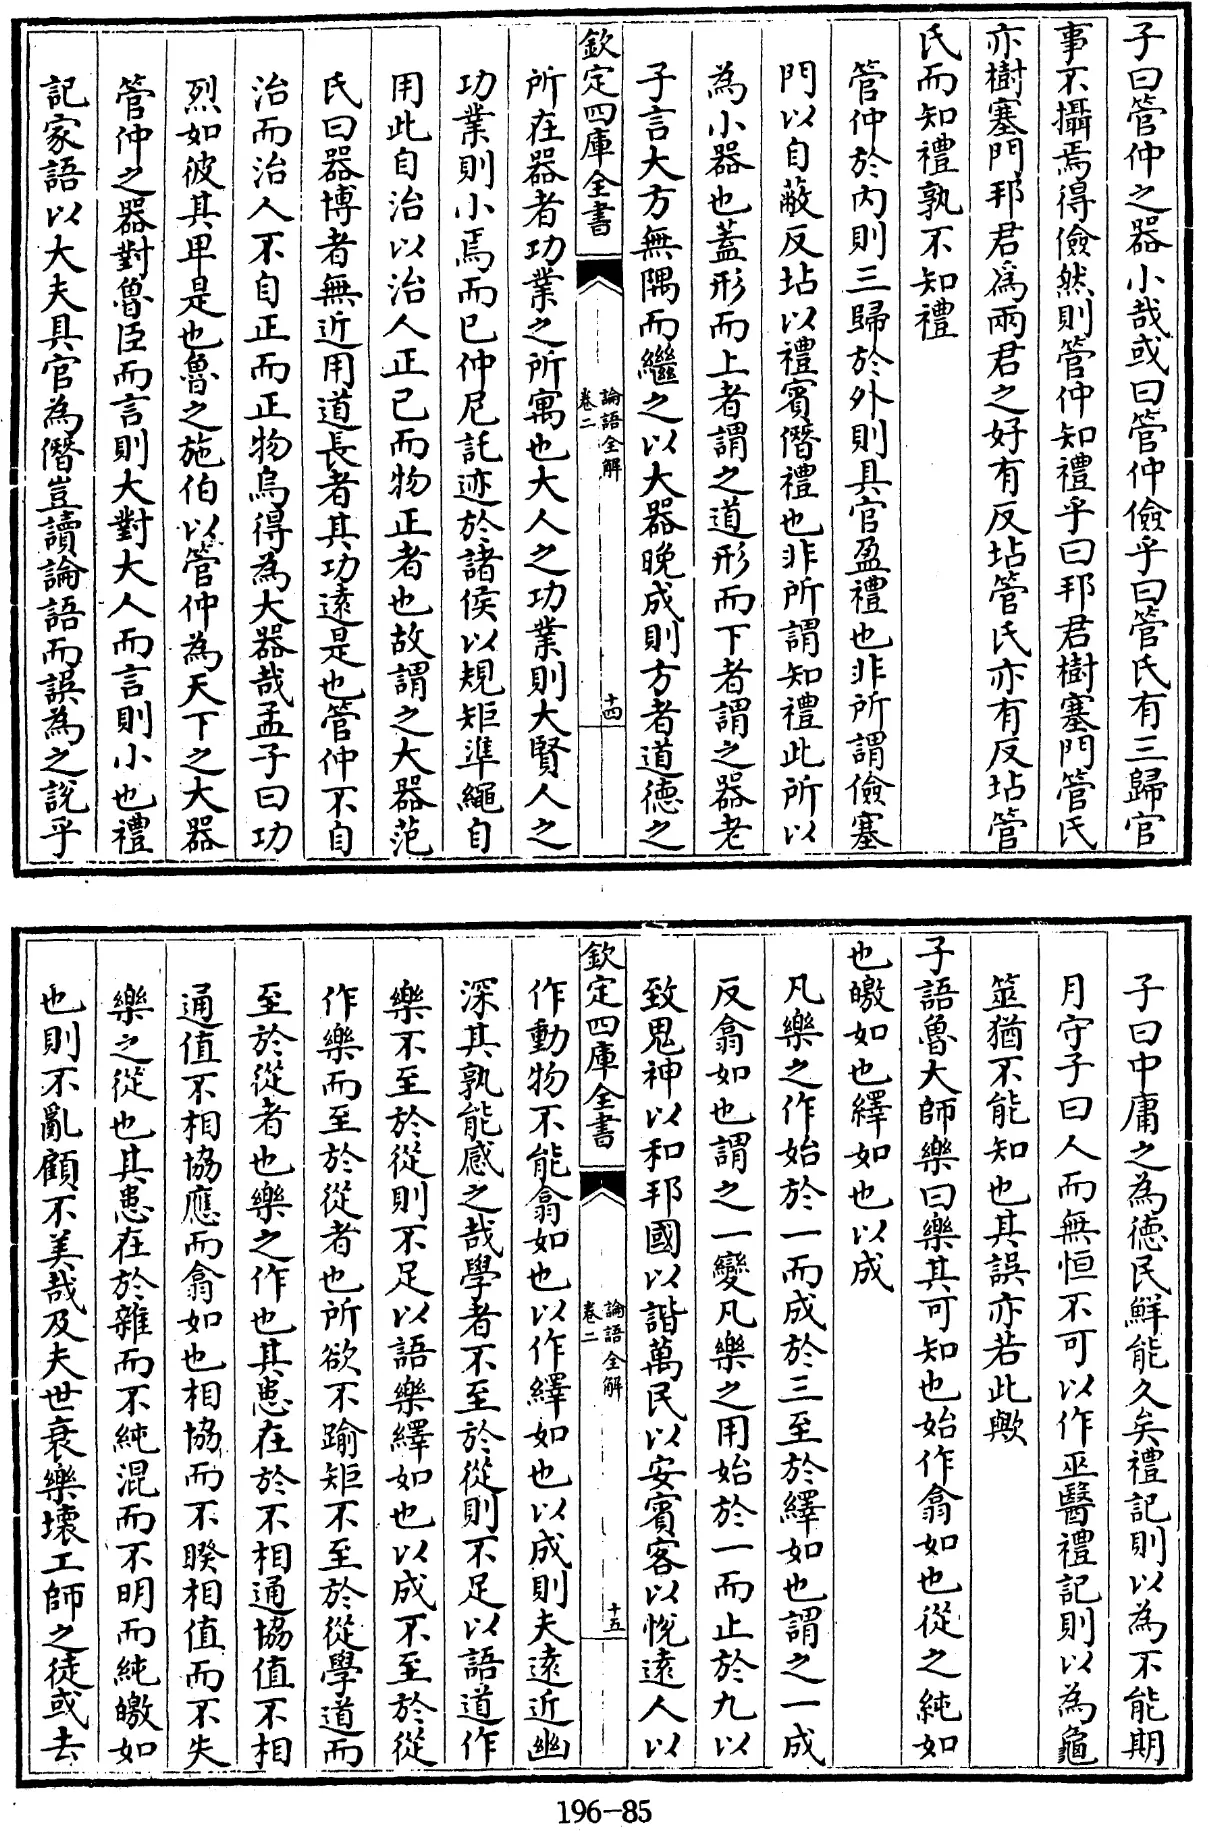 子曰管仲之器小哉或曰管仲儉乎曰管氏有三歸官
事不攝焉得儉然則管仲知禮乎曰邦君樹塞門管氏
亦樹塞門邦君爲兩君之好有反坫管氏亦有反坫管
氏而知禮孰不知禮
管仲於內則三歸於外則具官盈禮也非所謂儉塞
門以自蔽反坫以禮賓僭禮也非所謂知禮此所以
為小器也蓋形而上者謂之道形而下者謂之器老
子言大方無隅而繼之以大器晚成則方者道德之
欽定四庫全書
論語全解
卷二
十四
所在器者功業之所寓也大人之功業則大賢人之
功業則小焉而已仲尼託迹於諸侯以規矩準繩自
用此自治以治人正已而物正者也故謂之大器范
氏曰器博者無近用道長者其功遠是也管仲不自
治而治人不自正而正物烏得為大器哉孟子曰功
烈如彼其卑是也魯之施伯以管仲為天下之大器
管仲之器對魯臣而言則大對大人而言則小也禮
記家語以大夫具官為僭豈讀論語而誤為之說乎
子曰中庸之為德民鮮能久矣禮記則以為不能期
月守子曰人而無恒不可以作巫醫禮記則以為龜
筮猶不能知也其誤亦若此歟
子語魯大師樂曰樂其可知也始作翕如也從之純如
也皦如也繹如也以成
凡樂之作始於一而成於三至於繹如也謂之一成
反翕如也謂之一變凡樂之用始於一而止於九以
致鬼神以和邦國以諧萬民以安賓客以悅遠人以
欽定四庫全書
論語全解
卷二
十五
作動物不能翕如也以作繹如也以成則夫遠近幽
深其孰能感之哉學者不至於從則不足以語道作
樂不至於從則不足以語樂繹如也以成不至於從
作樂而至於從者也所欲不踰矩不至於從學道而
至於從者也樂之作也其患在於不相通協值不相
通值不相協應而翕如也相協而不睽相值而不失
樂之從也其患在於雜而不純混而不明而純皦如
也則不亂顧不美哉及夫世衰樂壞工師之徒或去
196-85